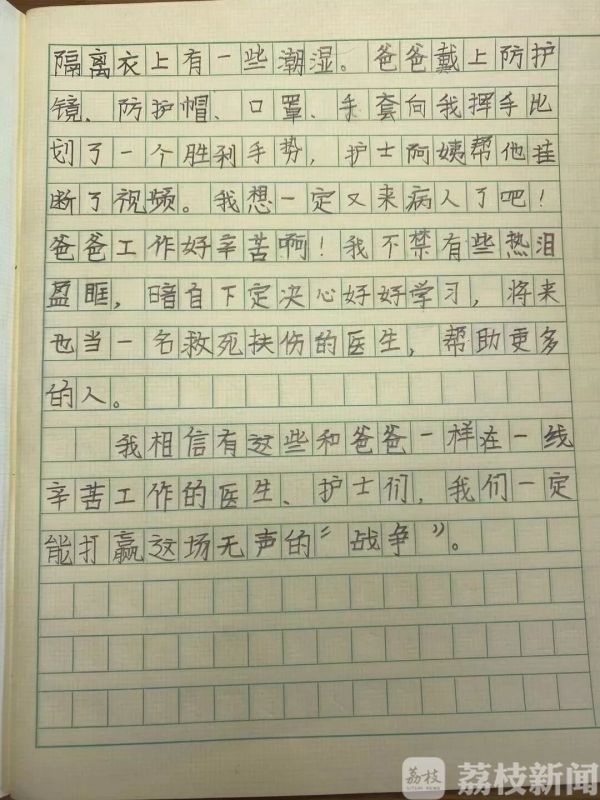 隔离衣上有一些潮湿。爸爸戴上防护
镜、防护帽、口罩、手套向我挥手比
划了一个胜利手势，护士阿姨帮他挂
断了视频。我想一定又来病人了吧！
爸爸工作好辛苦啊！我不禁有些热泪
盈眶，暗自下定决心好好学习，将来
也当一名救死扶伤的医生，帮助更多
的人。
我相信有这些和爸爸一样在一线
辛苦工作的医生、护士们，我们一定
能打赢这场无声的“战争”。
荔枝 荔枝新闻